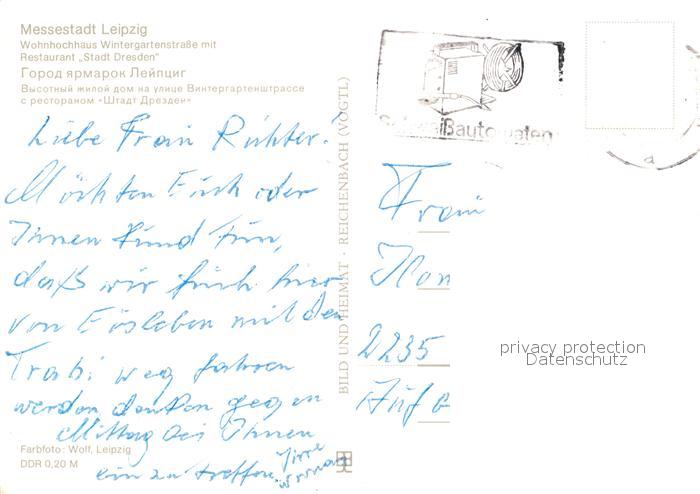 Messestadt Leipzig
Wohnhochhaus Wintergartenstraße mit
Restaurant „Stadt Dresden"
Город ярмарок Лейпциг
Высотный жилой дом на улице Винтергартенштрассе
с рестораном «Штадт Дрезден»
Liebe Frau Richter!
Möchten Euch oder
Ihnen kund tun,
daß wir früh hier
von Eisleben mit den
Trabi weg fahren
werden denken gegen
Mittag bei Ihnen
ein zu treffen.
Farbfoto: Wolf, Leipzig
DDR 0,20 M
BILD UND HEIMAT · REICHENBACH (VOGTL)
Frau
2235
privacy protection
Datenschutz